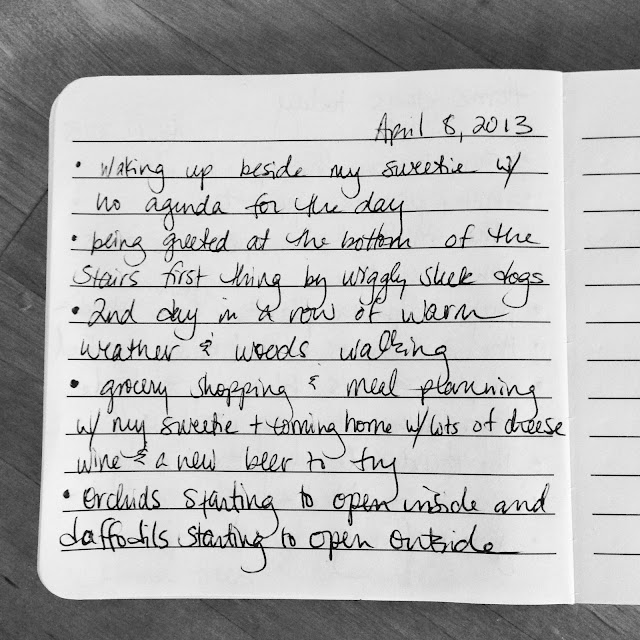 April 8, 2013
• waking up beside my sweetie w/
no agenda for the day
• being greeted at the bottom of the
stairs first thing by wiggly sleek dogs
• 2nd day in a row of warm
weather & woods walking
• grocery shopping & meal planning
w/ my sweetie + coming home w/ lots of cheese
wine & a new beer to try
• orchids starting to open inside and
daffodils starting to open outside